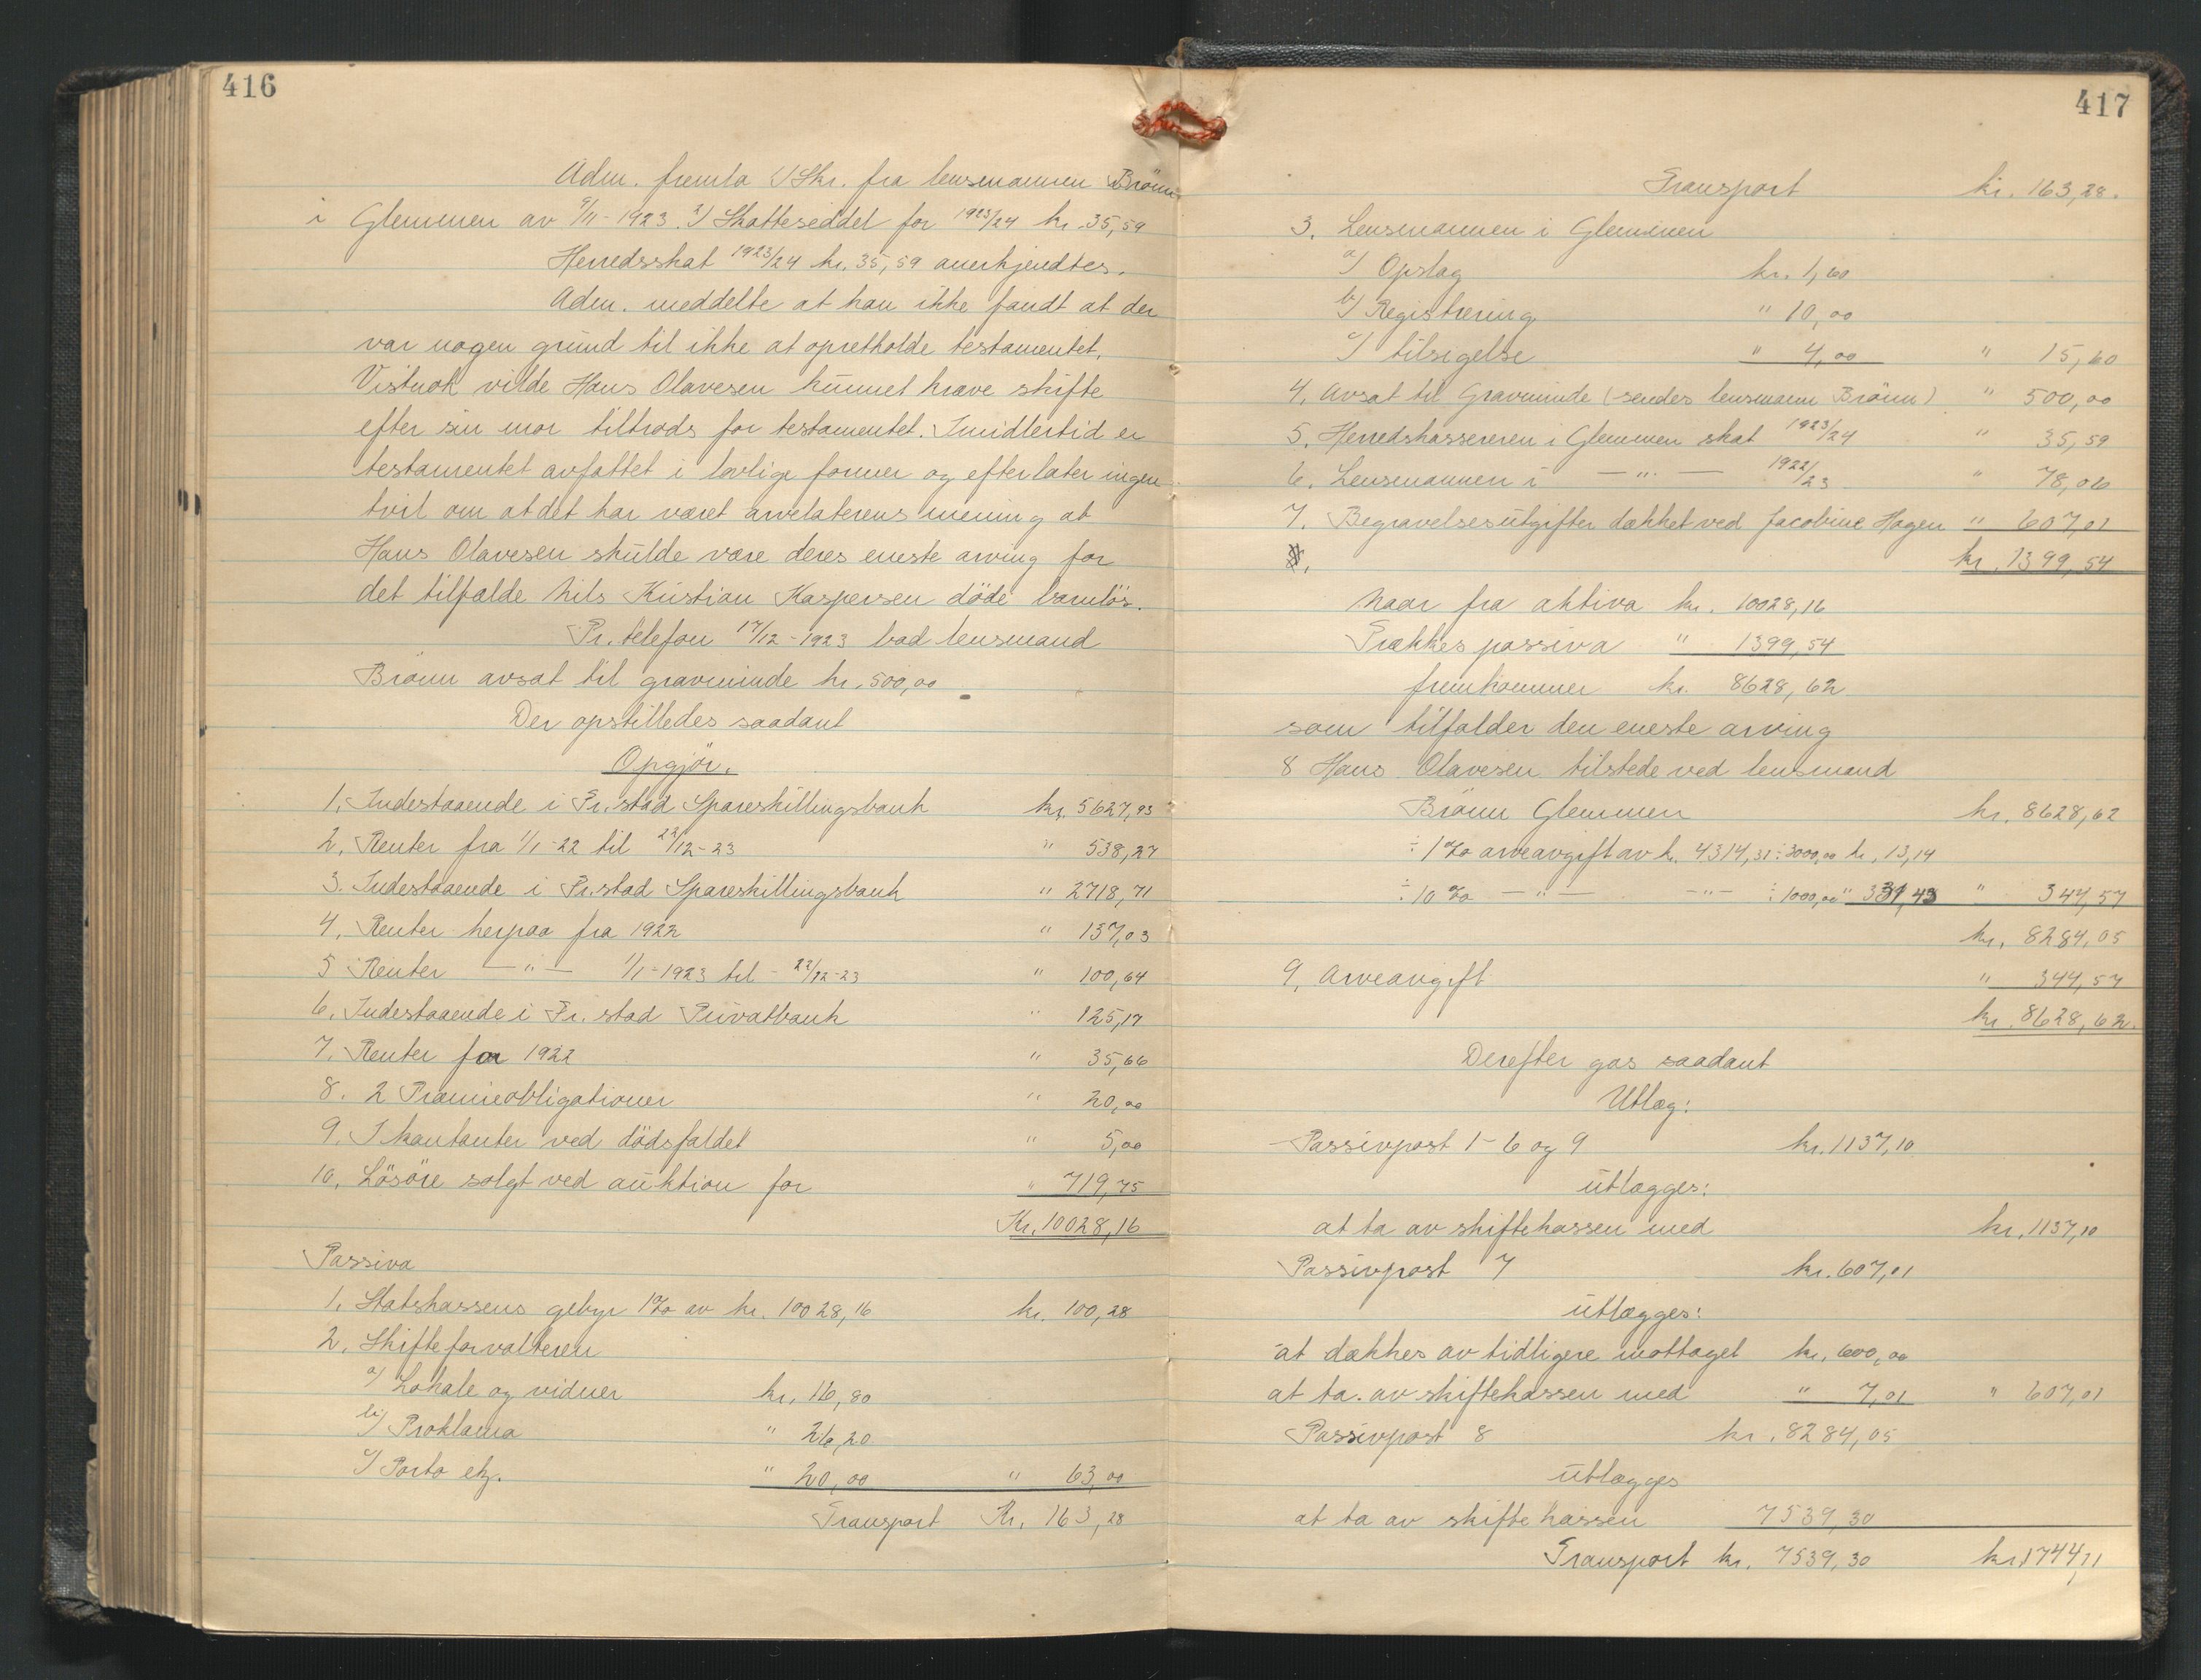 416
Adm. fremla 1) Skr. fra lensmannen Brönn
i Glemmen av 9/11-1923. 2) Skatteseddel for 1923/24 kr. 35,59
Herredsskat 1923/24 kr. 35,59 anerkjendtes.
Adm. meddelte at han ikke fandt at der
var nogen grund til ikke at opretholde testamentet.
Vistnok vilde Hans Olavesen kunnet kræve skifte
efter sin mor tiltrods for testamentet. Imidlertid er
testamentet avfattet i lovlige former og efterlater ingen
tvil om at det har været arvelaterens mening at
Hans Olavesen skulde være deres eneste arving for
det tilfælde Nils Kristian Kaspersen döde barnlös.
Pr. telefon 17/12-1923 bad lensmand
Brönn avsat til gravminde kr. 500,00
Der opstilledes saadant
Opgjör.
1. Indestaaende i Fr.stad Spareskillingsbank kr. 5627,93
2. Renter fra 1/1-22 til 22/12-23 " 538,27
3. Indestaaende i Fr.stad Spareskillingsbank " 2718,71
4. Renter herpaa fra 1922 " 137,03
5 Renter —"— 1/1-1923 til - 22/12-23 " 100,64
6. Indestaaende i Fr. stad Privatbank " 125,17
7. Renter for 1922 " 35,66
8. 2 Præmieobligationer " 20,00
9. I kontanter ved dödsfaldet " 5,00
10. Lösöre solgt ved auktion for " 719,75
Kr. 10028,16
Passiva
1. Statskassens gebyr 1% av kr. 10028,16 kr. 100,28
2. Skifteforvalteren
a) Lokale og vidner kr. 16,80
b) Proklama " 26,20
c) Porto etz. " 20,00 " 63,00
Transport Kr. 163,28
417
Transport kr. 163,28.
3. Lensmannen i Glemmen
a) Opslag kr. 1,60
b) Registrering " 10,00
c) tilsigelse " 4,00 " 15,60
4. Avsat til Gravminde (sendes lensmann Brönn) " 500,00
5. Herredskassereren i Glemmen skat 1923/24 " 35,59
6. Lensmannen i —"— 1922/23 " 78,06
7. Begravelsesutgifter dækket ved Jacobine Hagen " 607,01
8. kr. 1399,54
Naar fra aktiva kr. 10028,16
Trækkes passiva " 1399,54
fremkommer kr. 8628,62
som tilfalder den eneste arving
8 Hans Olavesen tilstede ved lensmand
Brönn Glemmen kr. 8628,62
÷ 1% arveavgift av kr. 4314,31 ÷ 3000,00 kr. 13,14
÷ 10% —"— —"— ÷ 1000,00 " 331,43 " 344,57
kr. 8284,05
9. Arveavgift " 344,57
kr. 8628,62.
Derefter gas saadant
Utlæg:
Passivpost 1-6 og 9 kr. 1137,10
utlægges:
at ta av skiftekassen med kr. 1137,10
Passivpost 7 kr. 607,01
utlægges:
at dækkes av tidligere mottaget kr. 600,00
at ta. av skiftekassen med " 7,01 " 607,01
Passivpost 8 kr. 8284,05
utlægges
at ta av skiftekassen 7539,30
Transport kr. 7539,30 kr. 1744,11